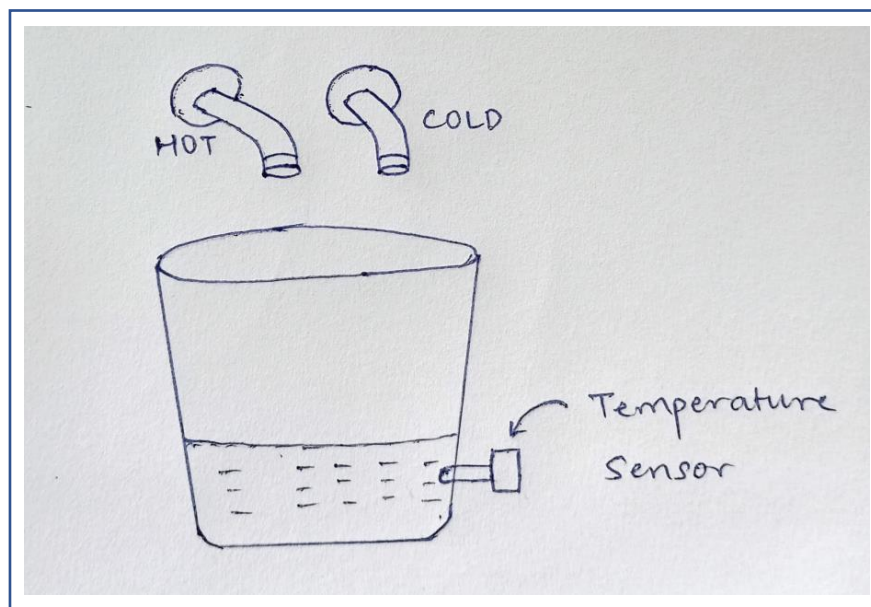 HOT
COLD
Temperature
Sensor